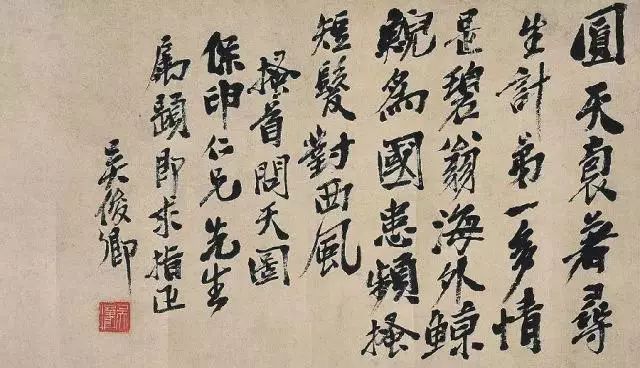 圓天著尋
生計第一多情
是碧翁海外鯨
鯢為國患頻搔
短髮對西風
搔首問天圖
保申仁兄先生
屬題即求指正
吳俊卿